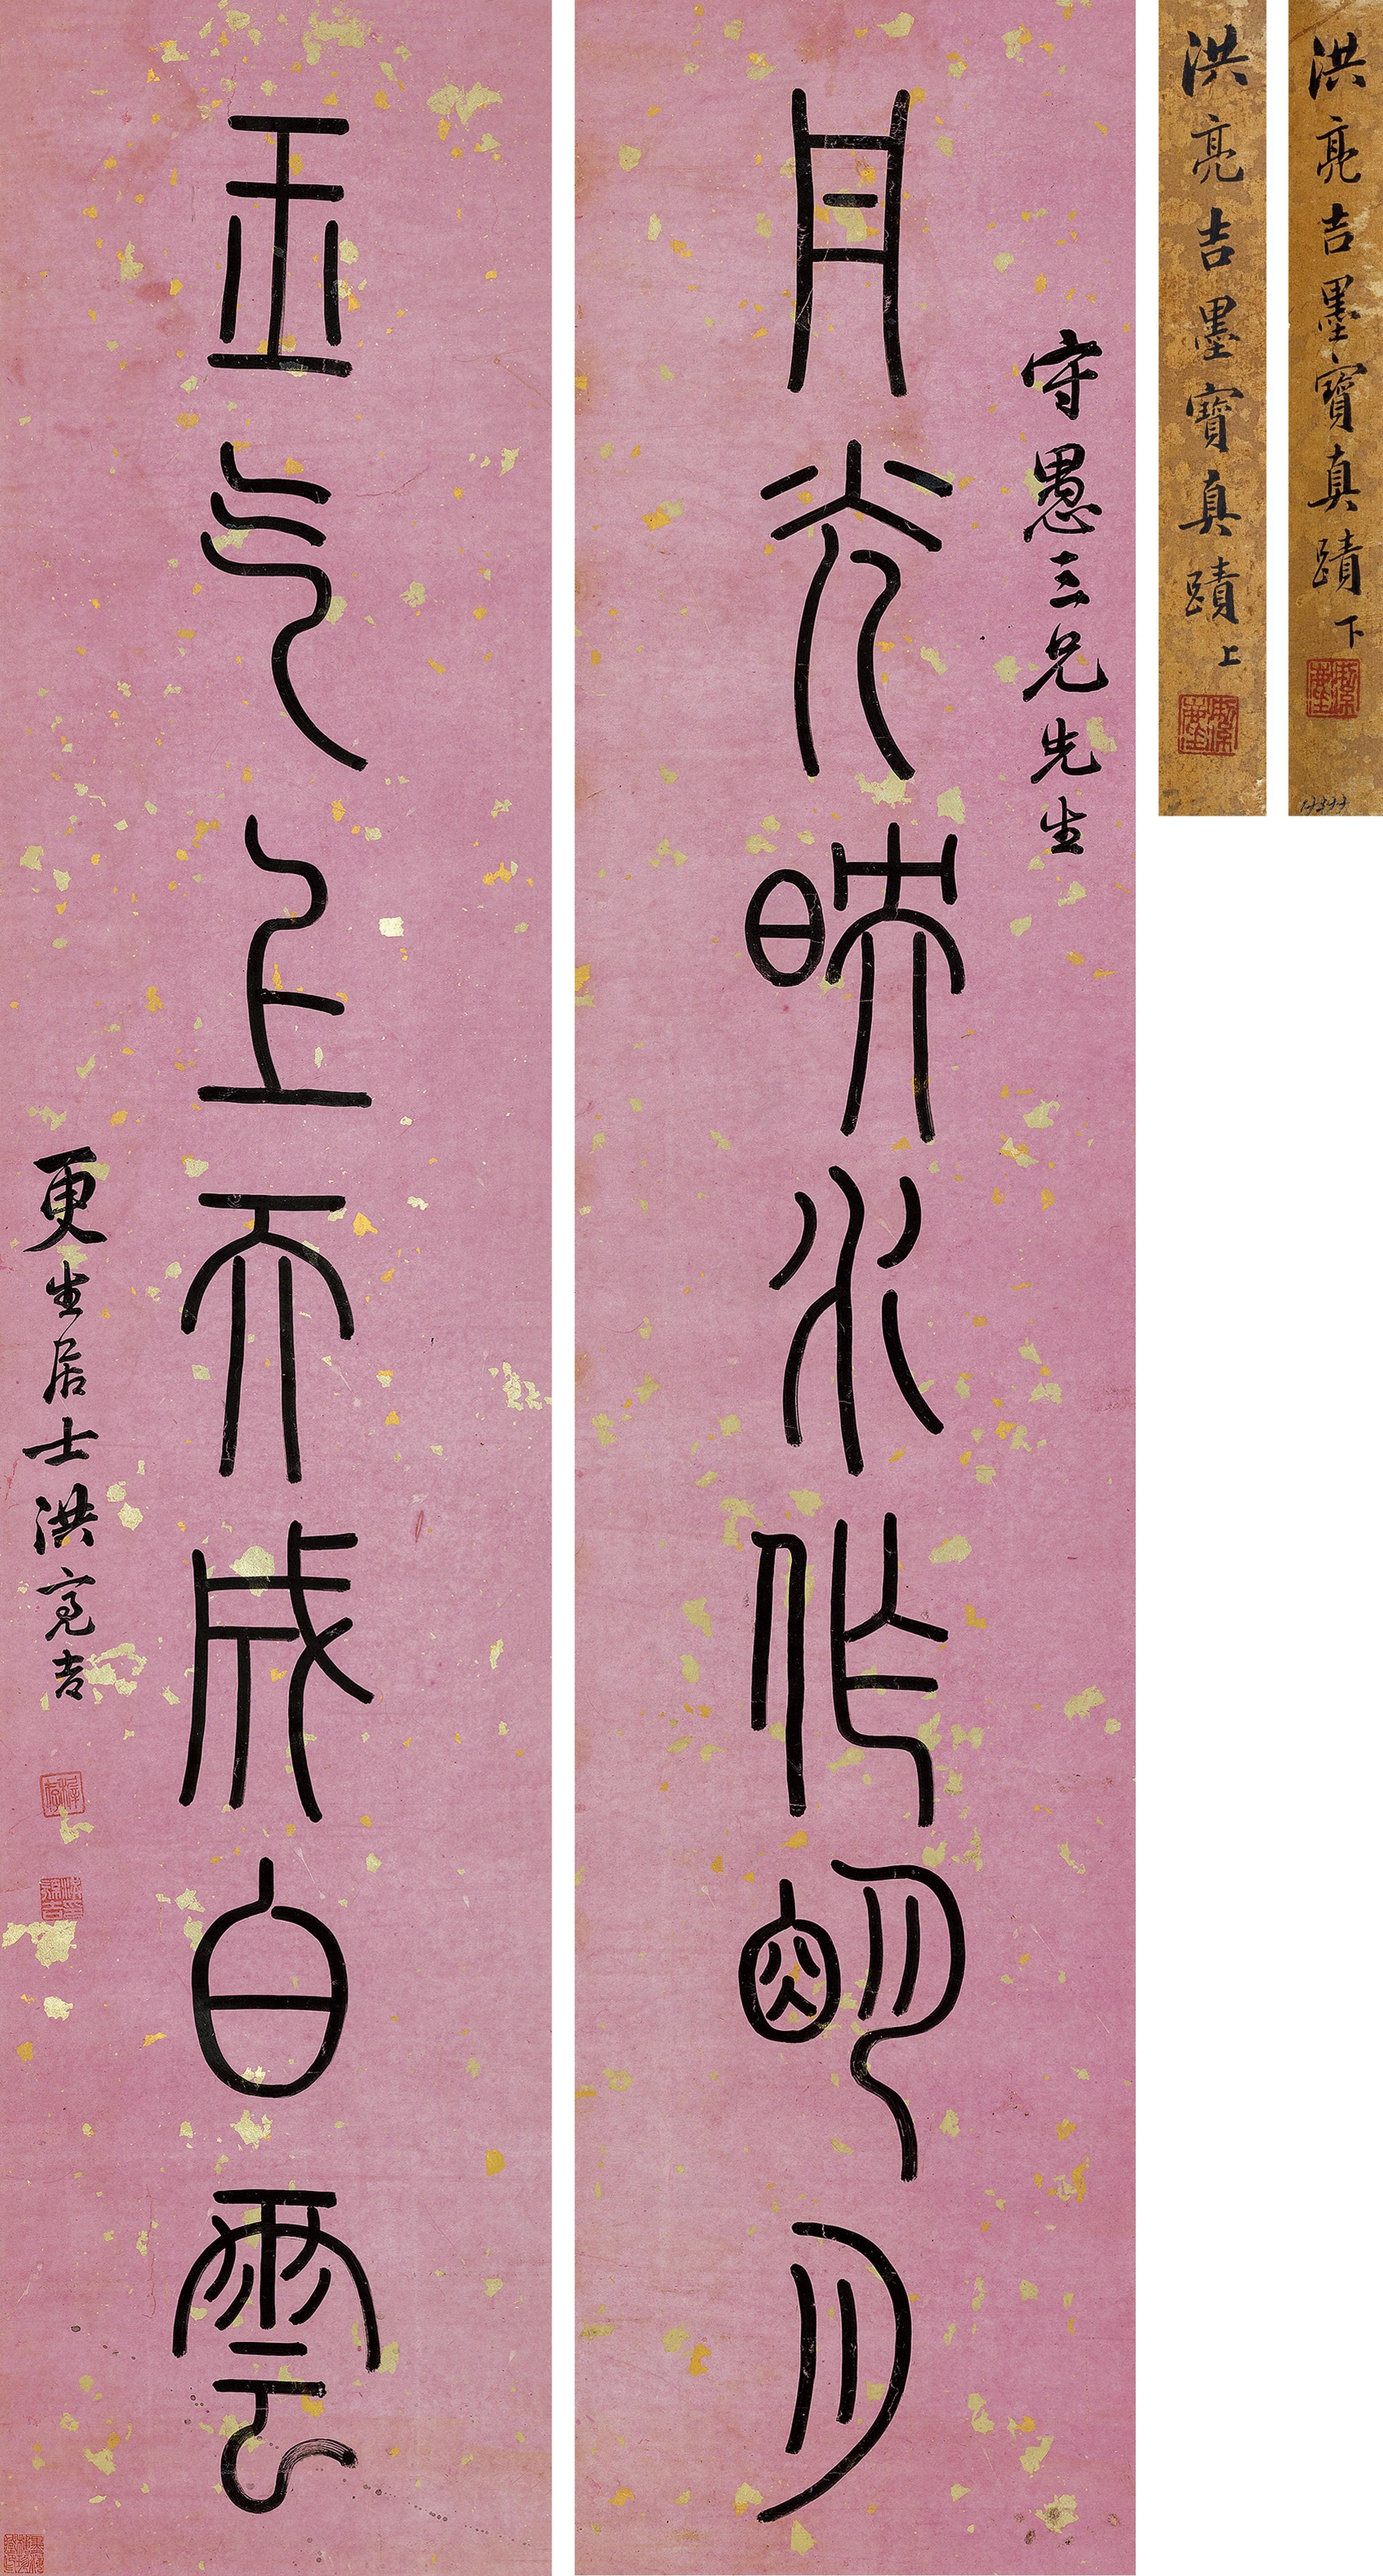 守愚三兄先生
丹光映水作明月
玉气上天成白雲
更生居士洪亮吉
洪亮吉墨寶真蹟上
洪亮吉墨寶真蹟下